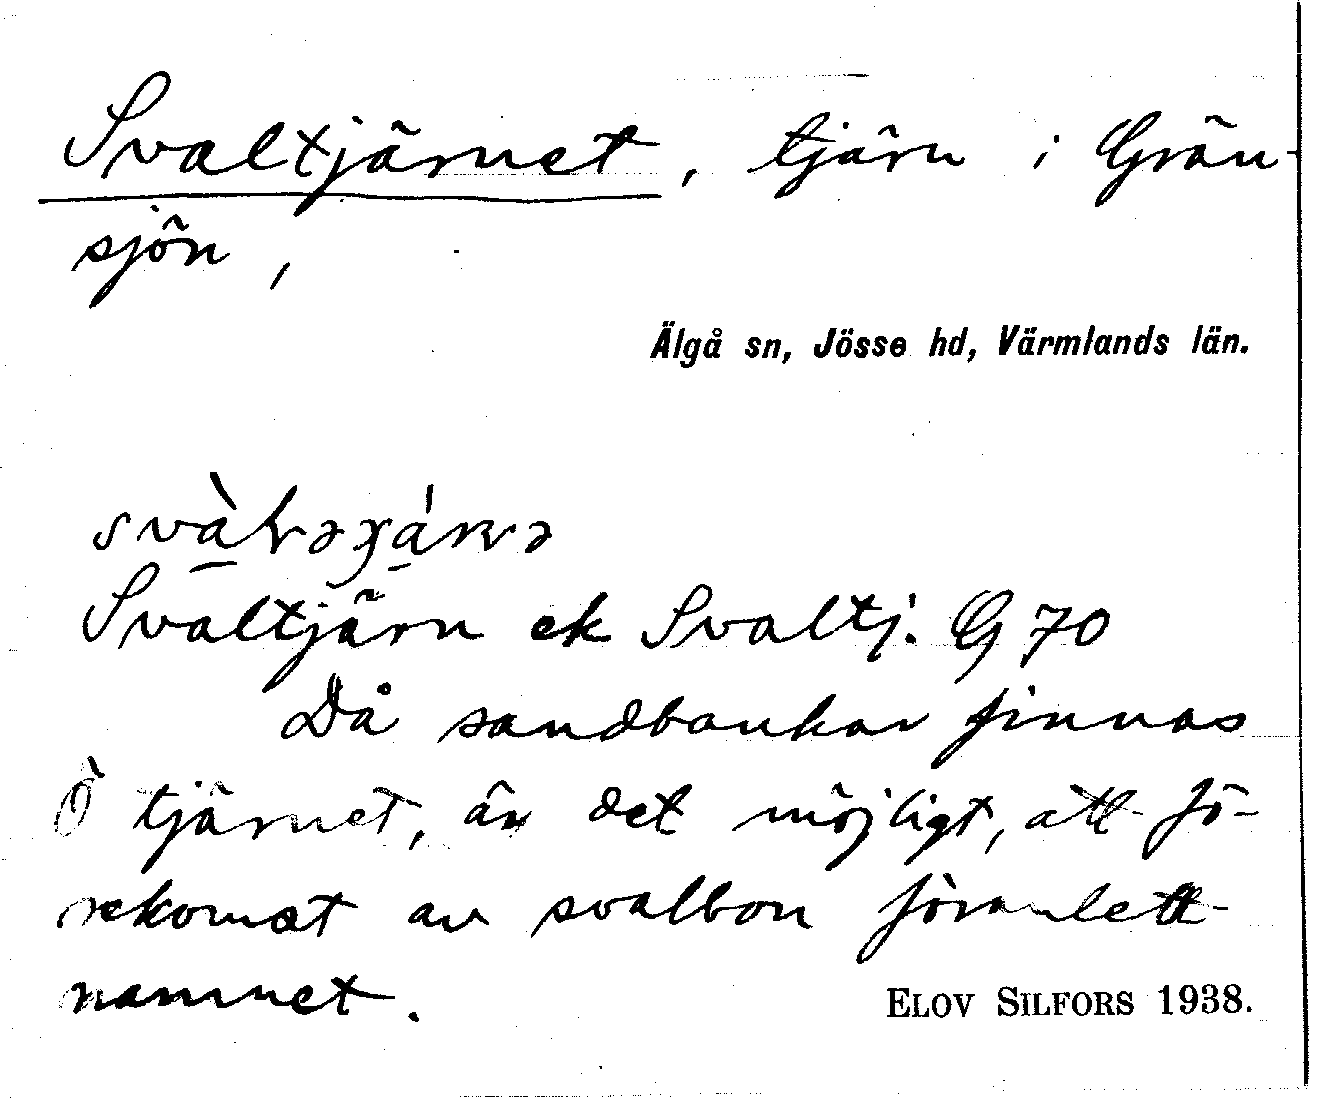 Svaltjärnet, tjärn i Grän-
sjön,
Älgå sn, Jösse hd, Värmlands län.
Svaltjärn ek Svaltj. G 70
Då sandbankar finnas
Ò tjärnet, är det möjligt, att fö-
rekomst av svalbon föranlett
namnet.
ELOV SILFORS 1938.